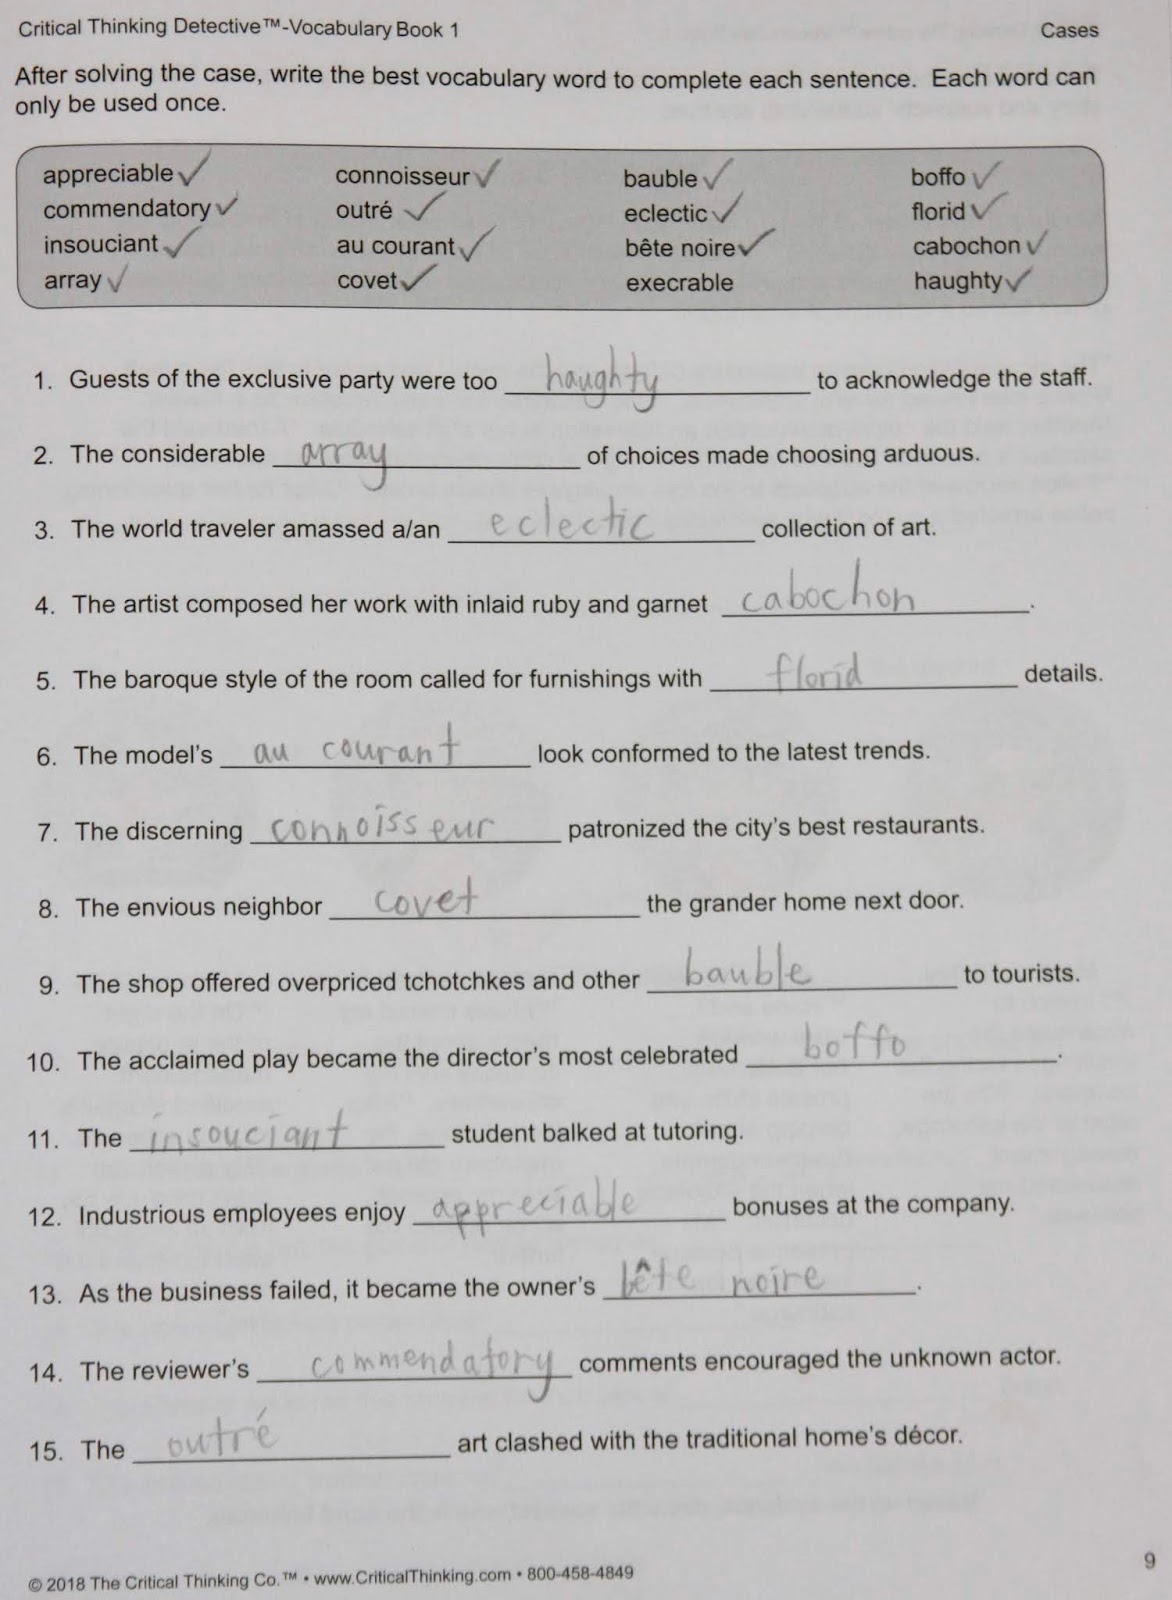 Critical Thinking Detective™-Vocabulary Book 1 Cases
After solving the case, write the best vocabulary word to complete each sentence. Each word can
only be used once.
appreciable✓ connoisseur✓ bauble✓ boffo✓
commendatory✓ outré✓ eclectic✓ florid✓
insouciant✓ au courant✓ bête noire✓ cabochon✓
array✓ covet✓ execrable haughty✓
1. Guests of the exclusive party were too haughty to acknowledge the staff.
2. The considerable array of choices made choosing arduous.
3. The world traveler amassed a/an eclectic collection of art.
4. The artist composed her work with inlaid ruby and garnet cabochon.
5. The baroque style of the room called for furnishings with florid details.
6. The model's au courant look conformed to the latest trends.
7. The discerning connoisseur patronized the city's best restaurants.
8. The envious neighbor covet the grander home next door.
9. The shop offered overpriced tchotchkes and other bauble to tourists.
10. The acclaimed play became the director's most celebrated boffo.
11. The insouciant student balked at tutoring.
12. Industrious employees enjoy appreciable bonuses at the company.
13. As the business failed, it became the owner's bête noire.
14. The reviewer's commendatory comments encouraged the unknown actor.
15. The outré art clashed with the traditional home's décor.
© 2018 The Critical Thinking Co.™ • www.CriticalThinking.com • 800-458-4849 9